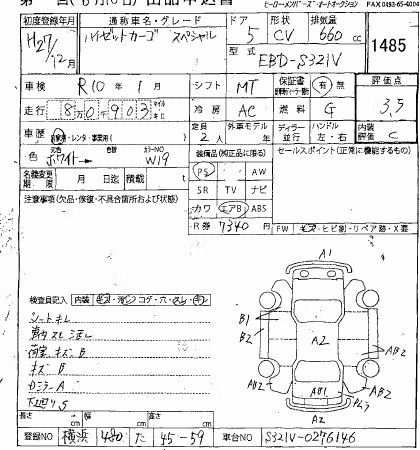 ヒーローメンバーズ・オートオークション FAX 0493-65-4004
初度登録年月 通称車名・グレード ドア 形状 排気量
H27/12月 ハイゼットカーゴ スペシャル 5 CV 660 cc
型式 EBD-S321V
1485
車検 R10年 1月 シフト MT 保証書 有・無 評価点
走行 8万0千903 マイル キロ 冷房 AC 燃料 G 3.5
車歴 自家用・レンタ・事業用( ) 定員 2人 外車モデル ディーラー 並行 ハンドル 左・右 内装評価 C
色 元色 ホワイト 色替 カラーNO W19
装備品(純正品に限る) セールスポイント(正常に機能するもの)
名義変更期限 月 日迄 積載 t
PS AW
SR TV ナビ
カワ エアB ABS
注意事項(欠品・修復・不具合箇所および状態)
R券 7340 円 FW キズ・ヒビ割・リペア跡・X要
検査員記入 内装
シートキレ
荷室 キズ B
キズ B
Gミラー A
下廻りS
A1
B1
B2
A2
AB2
AB2
AB2
AB1
A2
長さ cm 幅 cm 高さ cm
登録NO 横浜 480 た 45-59 車台NO S321V-0276146